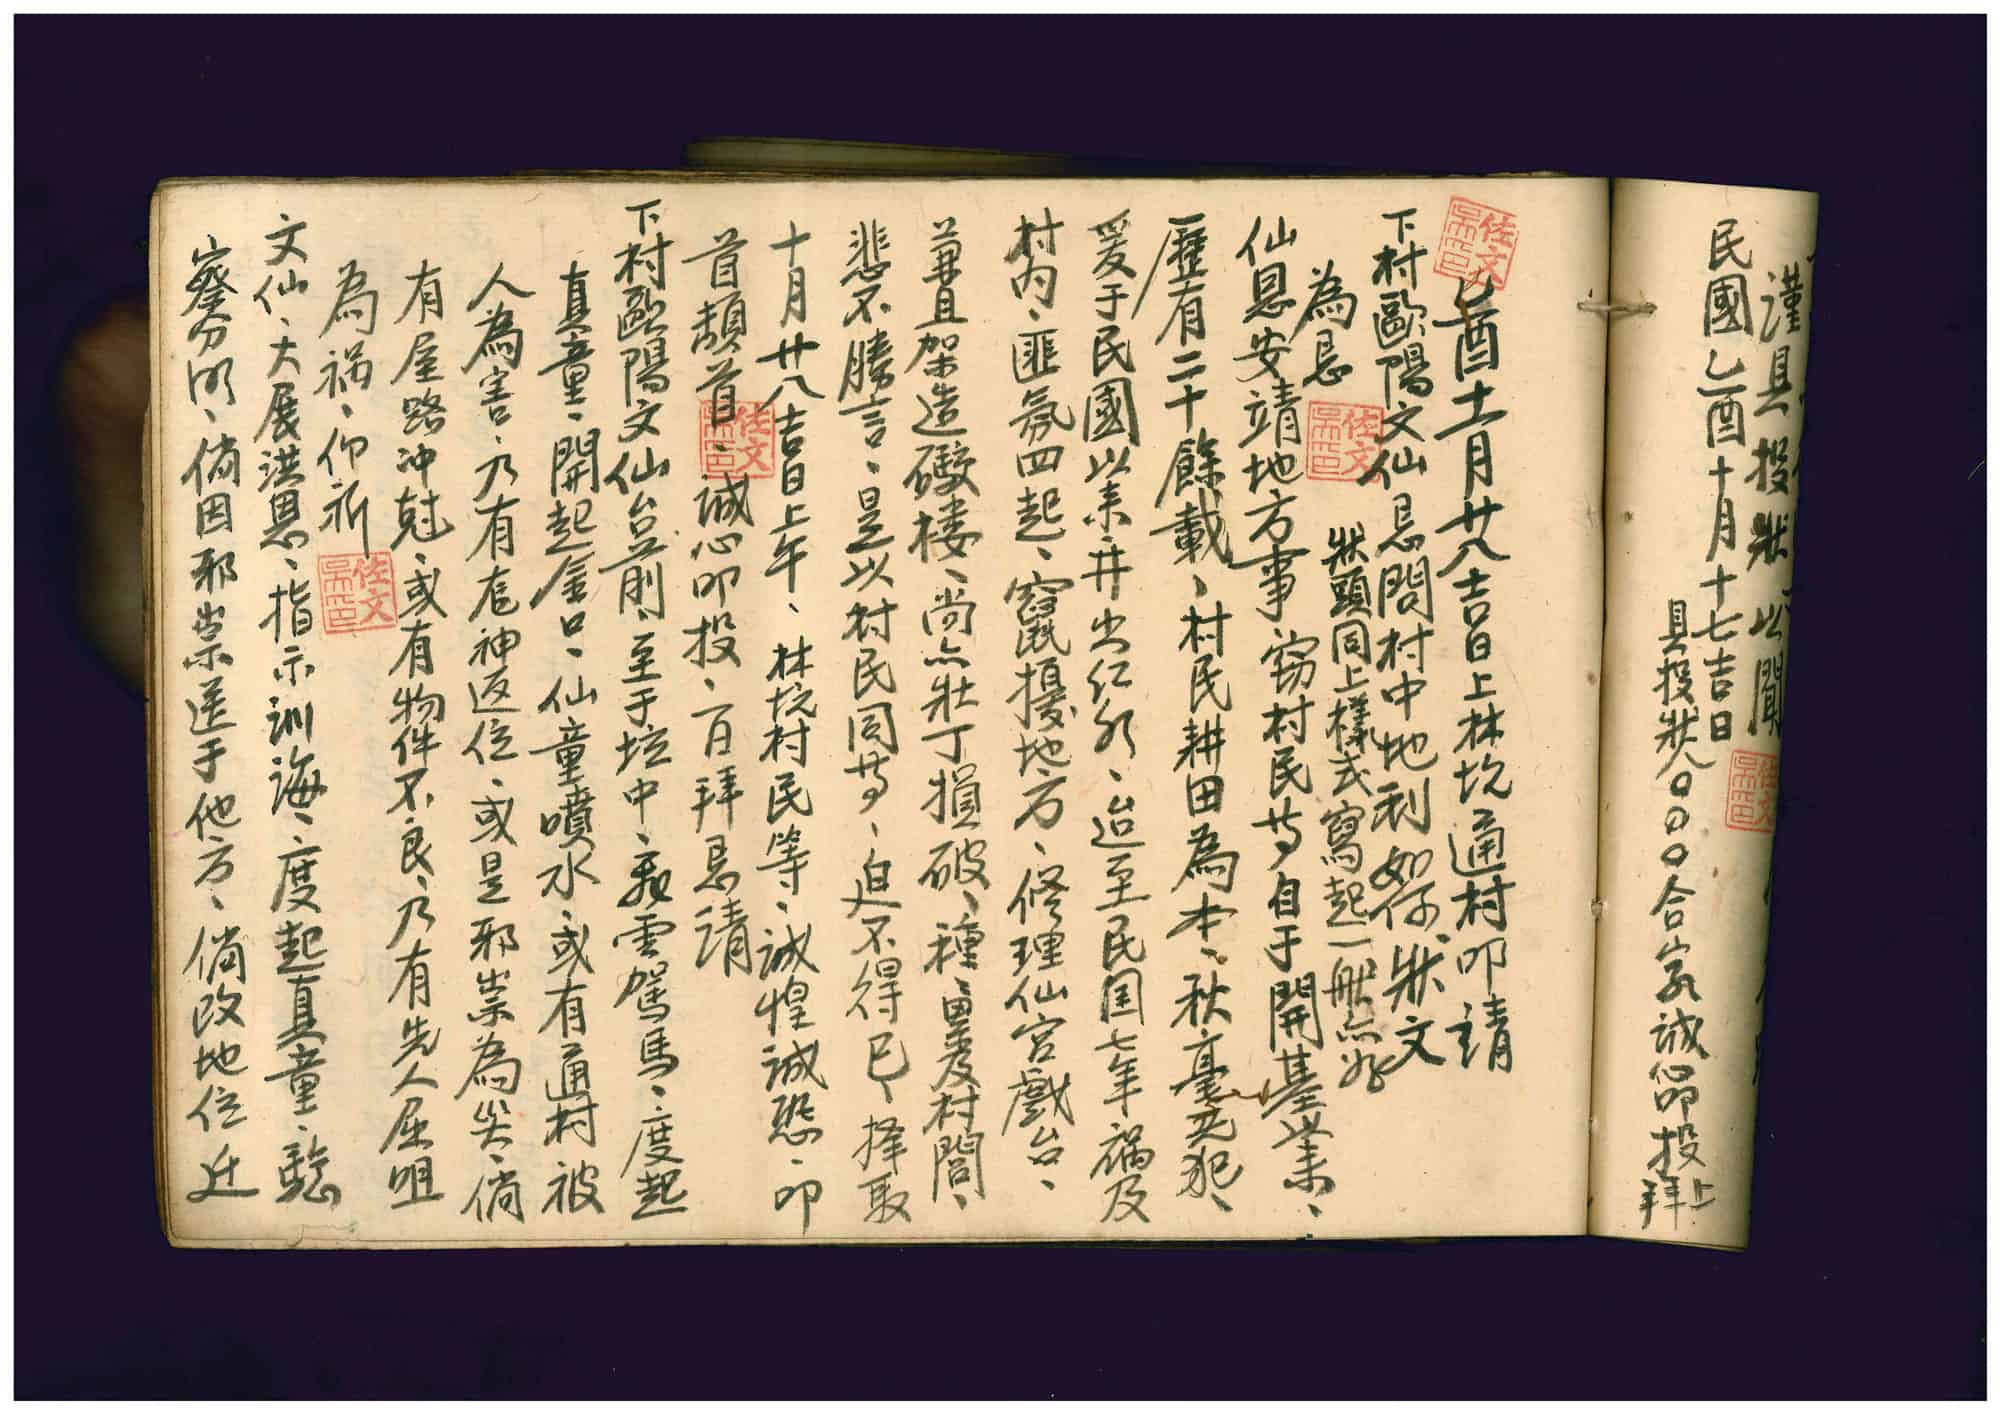 謹具投狀以聞
民國乙酉十月十七吉日
具投狀人〇〇〇合家誠心叩投
上拜
乙酉十一月廿八吉日上林坑通村叩請
下村歐陽文仙忌問村中地利如何、狀文
狀頭同上樣式寫起一般
為忌
仙恩安靖地方事窃村民等自于開基業、
歷有二十餘載、村民耕田為本、秋毫無犯、
爰于民國以來、井出紅水、迨至民国七年、禍及
村內、匪氛四起、竄擾地方、修理仙宮戲台、
兼且架造礮樓、尚亦壯丁損破、種、憂及村閭、
悲不勝言、是以村民同等、迫不得已、擇取
十月廿八吉日上午、林坑村民等、誠惶誠恐、叩
首頓首、誠心叩投、百拜忌請
下村歐陽文仙台前、至于壇中、雲駕馬、度起
真童、開起金口、仙童噴水、或有通村被
人為害、乃有神返位、或是邪祟為災、倘
有屋路冲尅、或有物件不良、乃有先人屈咀
為禍、仰祈
文仙、大展洪恩、指示訓誨、度起真童、驗
察分明、倘因邪祟送于他方、倘改地位迁
佐文
佐文
佐文
佐文
佐文